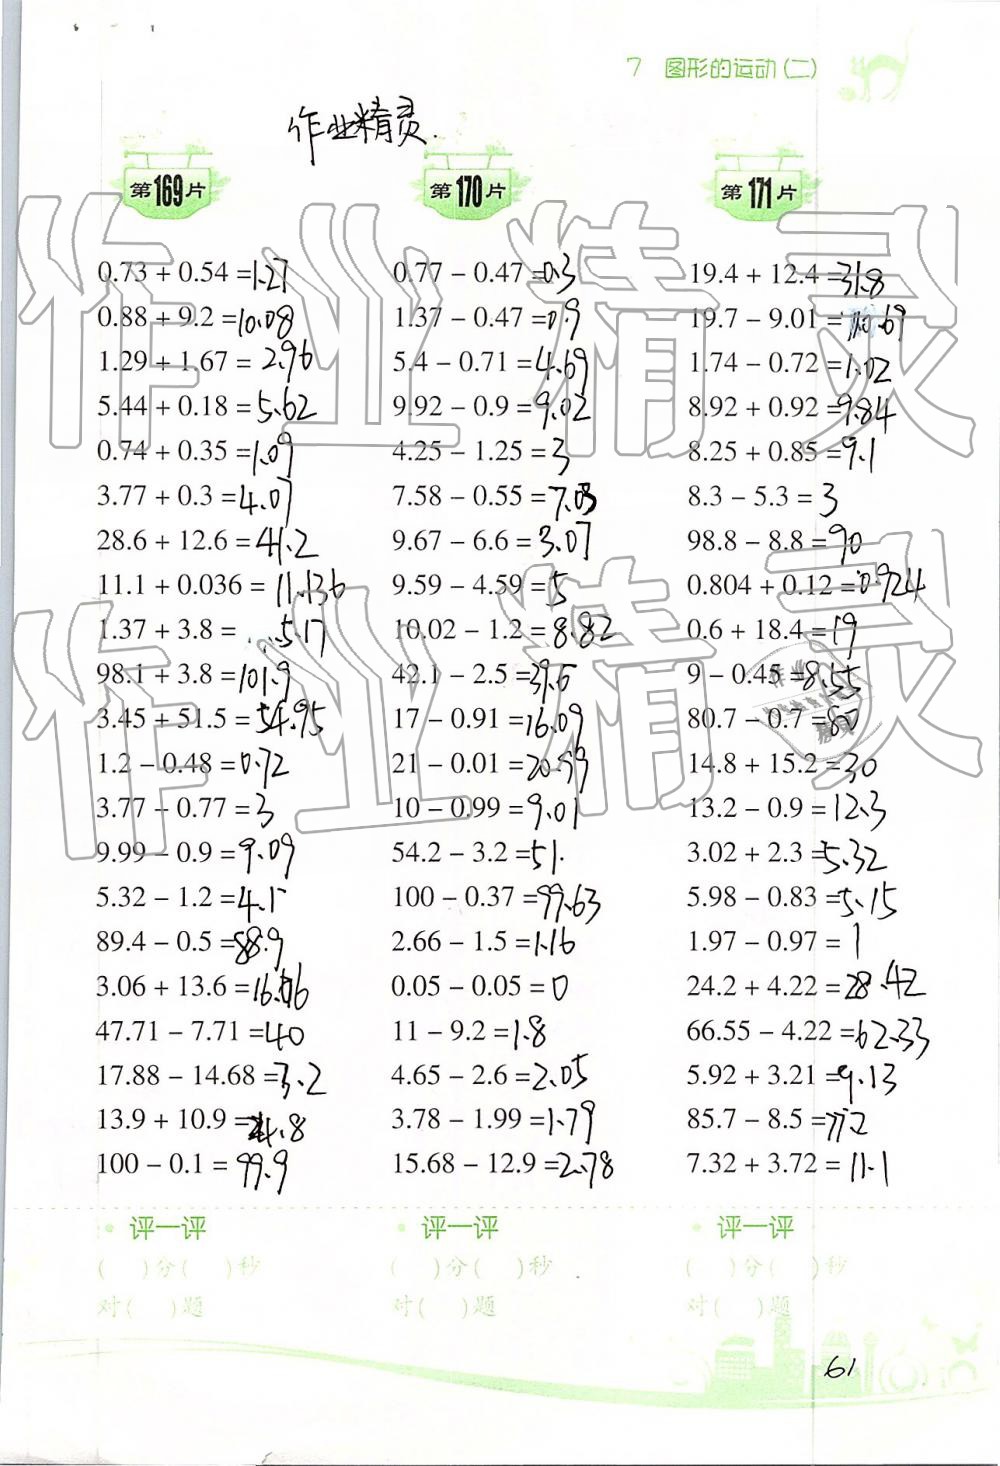 7 图形的运动(二)
作业精灵.
第169片
0.73 + 0.54 = 1.27
0.88 + 9.2 = 10.08
1.29 + 1.67 = 2.96
5.44 + 0.18 = 5.62
0.74 + 0.35 = 1.09
3.77 + 0.3 = 4.07
28.6 + 12.6 = 41.2
11.1 + 0.036 = 11.136
1.37 + 3.8 = 5.17
98.1 + 3.8 = 101.9
3.45 + 51.5 = 54.95
1.2 - 0.48 = 0.72
3.77 - 0.77 = 3
9.99 - 0.9 = 9.09
5.32 - 1.2 = 4.1
89.4 - 0.5 = 88.9
3.06 + 13.6 = 16.66
47.71 - 7.71 = 40
17.88 - 14.68 = 3.2
13.9 + 10.9 = 24.8
100 - 0.1 = 99.9
评一评
( )分( )秒
对( )题
第170片
0.77 - 0.47 = 0.3
1.37 - 0.47 = 0.9
5.4 - 0.71 = 4.69
9.92 - 0.9 = 9.02
4.25 - 1.25 = 3
7.58 - 0.55 = 7.03
9.67 - 6.6 = 3.07
9.59 - 4.59 = 5
10.02 - 1.2 = 8.82
42.1 - 2.5 = 39.6
17 - 0.91 = 16.09
21 - 0.01 = 20.99
10 - 0.99 = 9.01
54.2 - 3.2 = 51.
100 - 0.37 = 99.63
2.66 - 1.5 = 1.16
0.05 - 0.05 = 0
11 - 9.2 = 1.8
4.65 - 2.6 = 2.05
3.78 - 1.99 = 1.79
15.68 - 12.9 = 2.78
评一评
( )分( )秒
对( )题
第171片
19.4 + 12.4 = 31.8
19.7 - 9.01 = 10.69
1.74 - 0.72 = 1.02
8.92 + 0.92 = 9.84
8.25 + 0.85 = 9.1
8.3 - 5.3 = 3
98.8 - 8.8 = 90
0.804 + 0.12 = 0.924
0.6 + 18.4 = 19
9 - 0.45 = 8.55
80.7 - 0.7 = 80
14.8 + 15.2 = 30
13.2 - 0.9 = 12.3
3.02 + 2.3 = 5.32
5.98 - 0.83 = 5.15
1.97 - 0.97 = 1
24.2 + 4.22 = 28.42
66.55 - 4.22 = 62.33
5.92 + 3.21 = 9.13
85.7 - 8.5 = 77.2
7.32 + 3.72 = 11.1
评一评
( )分( )秒
对( )题
61
作业精灵
作业精灵